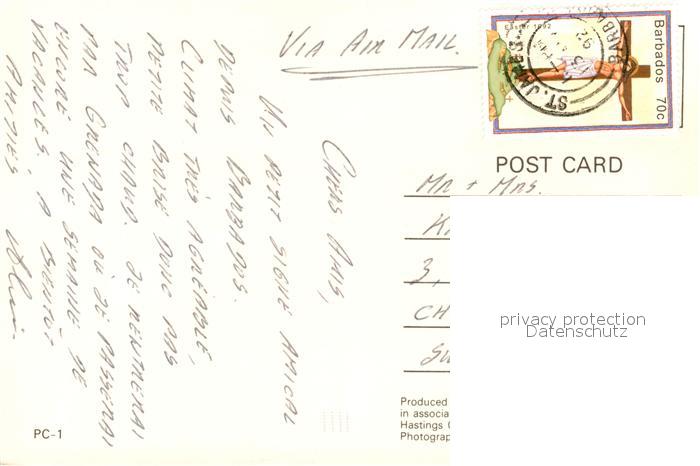 VIA AIR MAIL.
Easter 1992
Barbados 70c
ST. JAMES
BARBA
92
POST CARD
CHERS AMIS,
UN PETIT SIGNE AMICAL
DEPUIS BARBADOS.
CLIMAT TRÈS AGRÉABLE,
PETITE BRISE DONC PAS
TROP CHAUD. JE RENTRERAI
PAR GRENADA OÙ JE PASSERAI
ENCORE UNE SEMAINE DE
VACANCES. A BIENTÔT
AMITIÉS
MR + MRS.
K
3,
CH
SU
privacy protection
Datenschutz
Produced
in associa
Hastings C
Photograp
PC-1